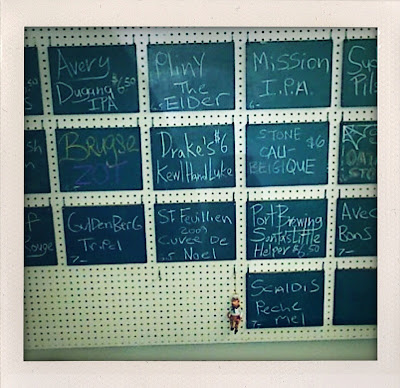 Avery
Dugana $6.50
IPA
Pliny
The
Elder
6-
Mission
I.P.A.
6-
Suc
Pils
sh
Brugse
ZOT
Drake's $6
Kewl Hand Luke
STONE $6
CALI-
BELGIQUE
Rouge
GuldenBerG
Tripel
7-
ST. Feuillien
2009
Cuvee De
Noel
Port Brewing
Santa's Little
Helper $6.50
Avec
Bons
7-
SCALDIS
Peche
mel
7-